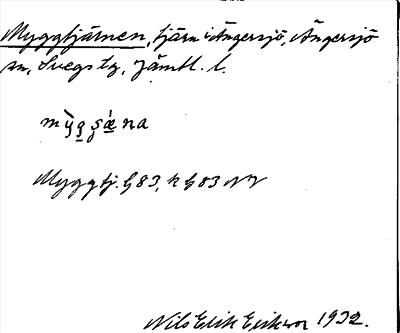 Myggtjärnen, tjärn i Ängersjö, Ängersjö
sn, Svegs tg, Jämtl. l.
mỳg̲ʂǽ̲na
Myggtj. G83, K G83 NV
Nils Erik Eriksson 1932.